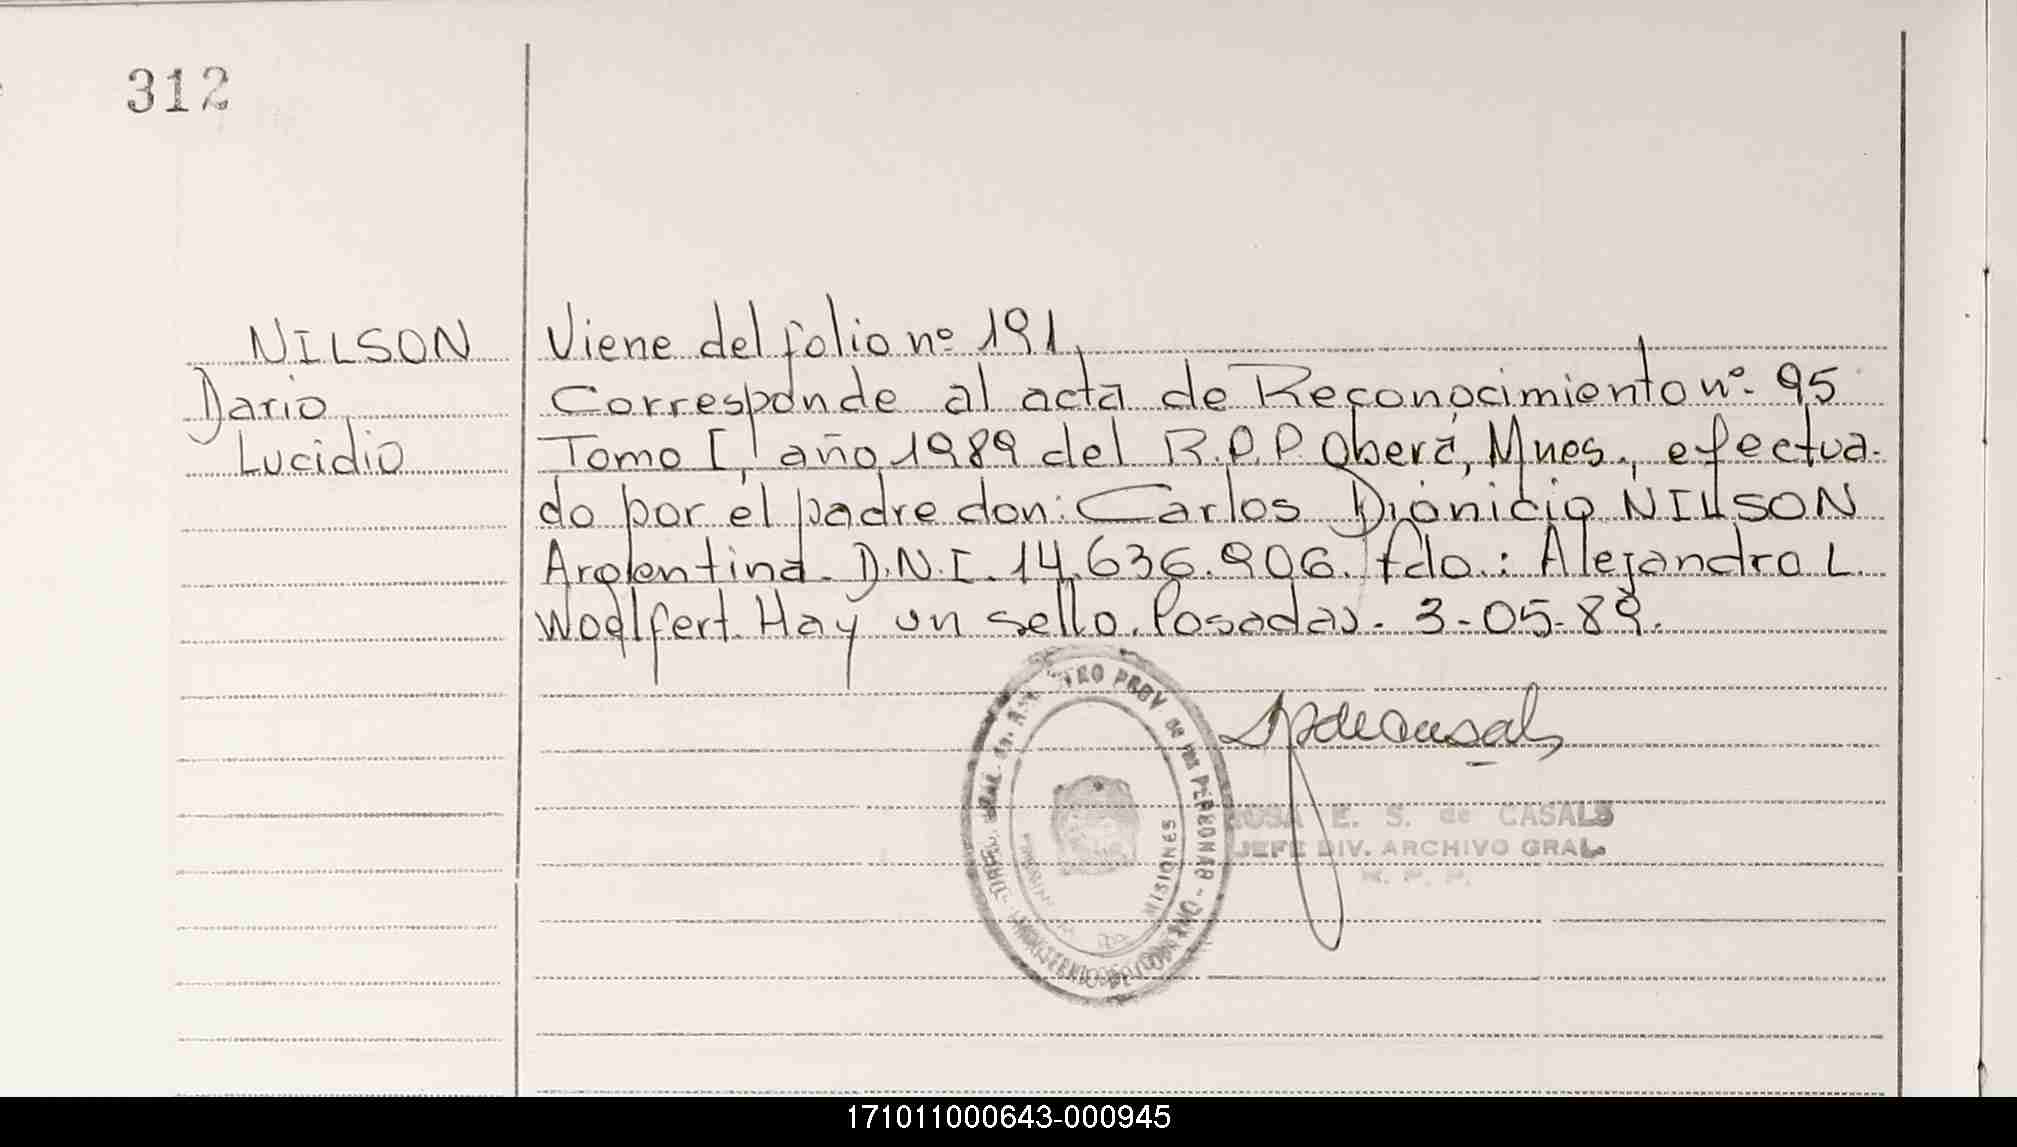 312
NILSON
Dario
Lucidio
Viene del folio nº 191
Corresponde al acta de Reconocimiento nº 95
Tomo I, año 1989 del R.P.P Oberá, Mnes., efectua-
do por el padre don: Carlos Dionicio NILSON
Argentina. D.N.I. 14.636.906. fdo.: Alejandro L.
Woolfert. Hay un sello. Posadas. 3-05-89.
PROV DE LAS PERSONAS
MISIONES
ROSA E. S. de CASALS
JEFE DIV. ARCHIVO GRAL.
R. P. P.
171011000643-000945